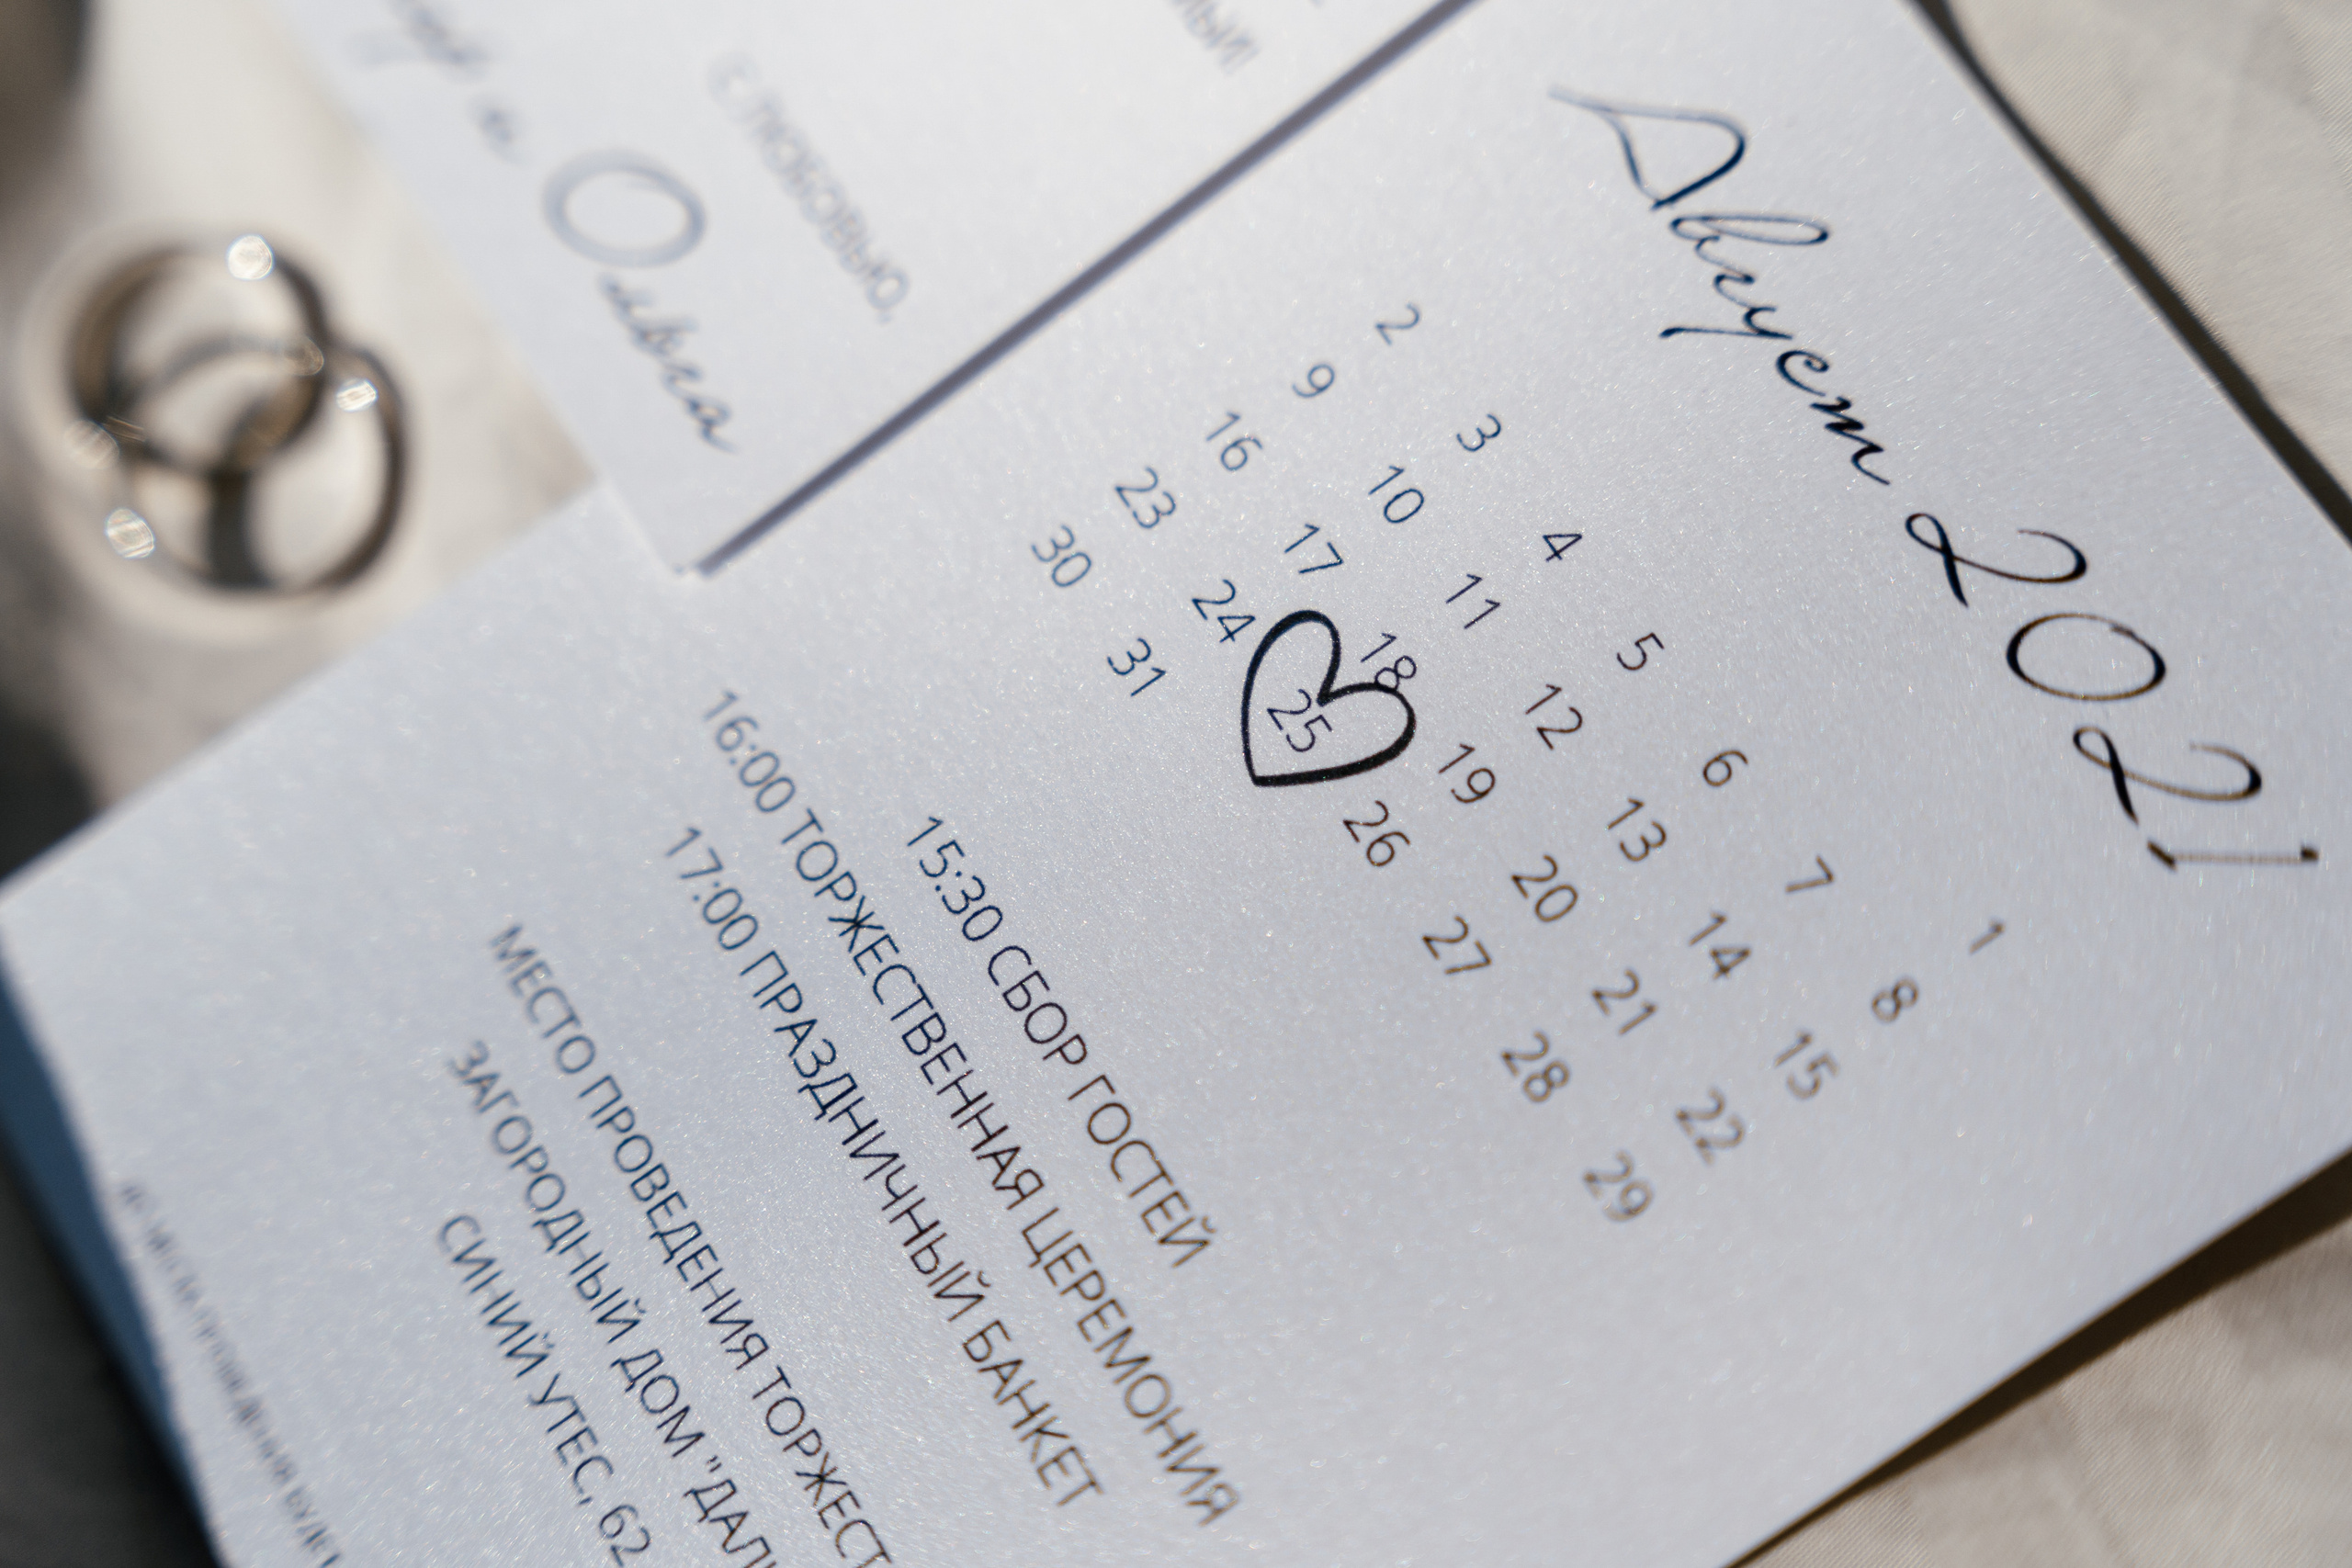 С ЛЮБОВЬЮ,
Ольга
Август 2021
1
2 3 4 5 6 7 8
9 10 11 12 13 14 15
16 17 18 19 20 21 22
23 24 25 26 27 28 29
30 31
15:30 СБОР ГОСТЕЙ
16:00 ТОРЖЕСТВЕННАЯ ЦЕРЕМОНИЯ
17:00 ПРАЗДНИЧНЫЙ БАНКЕТ
МЕСТО ПРОВЕДЕНИЯ ТОРЖЕСТ
ЗАГОРОДНЫЙ ДОМ "ДАЛ
СИНИЙ УТЕС, 62